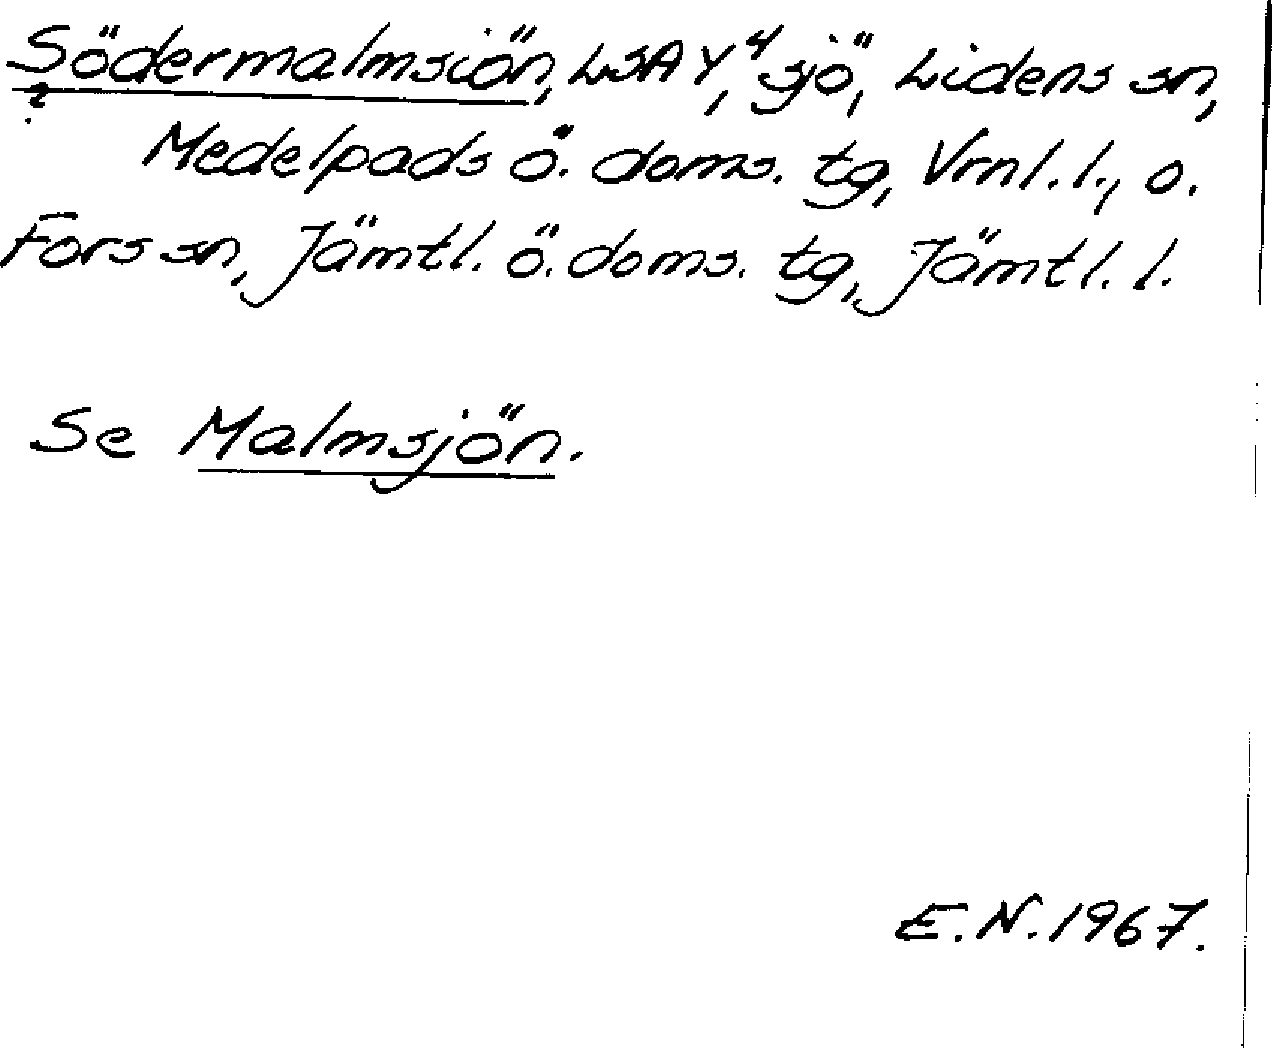 Södermalmsiön, LSA Y⁴, sjö, Lidens sn,
?
Medelpads ö. doms. tg, Vrnl. l., o.
Fors sn, Jämtl. ö. doms. tg, Jämtl. l.
Se Malmsjön.
E.N. 1967.